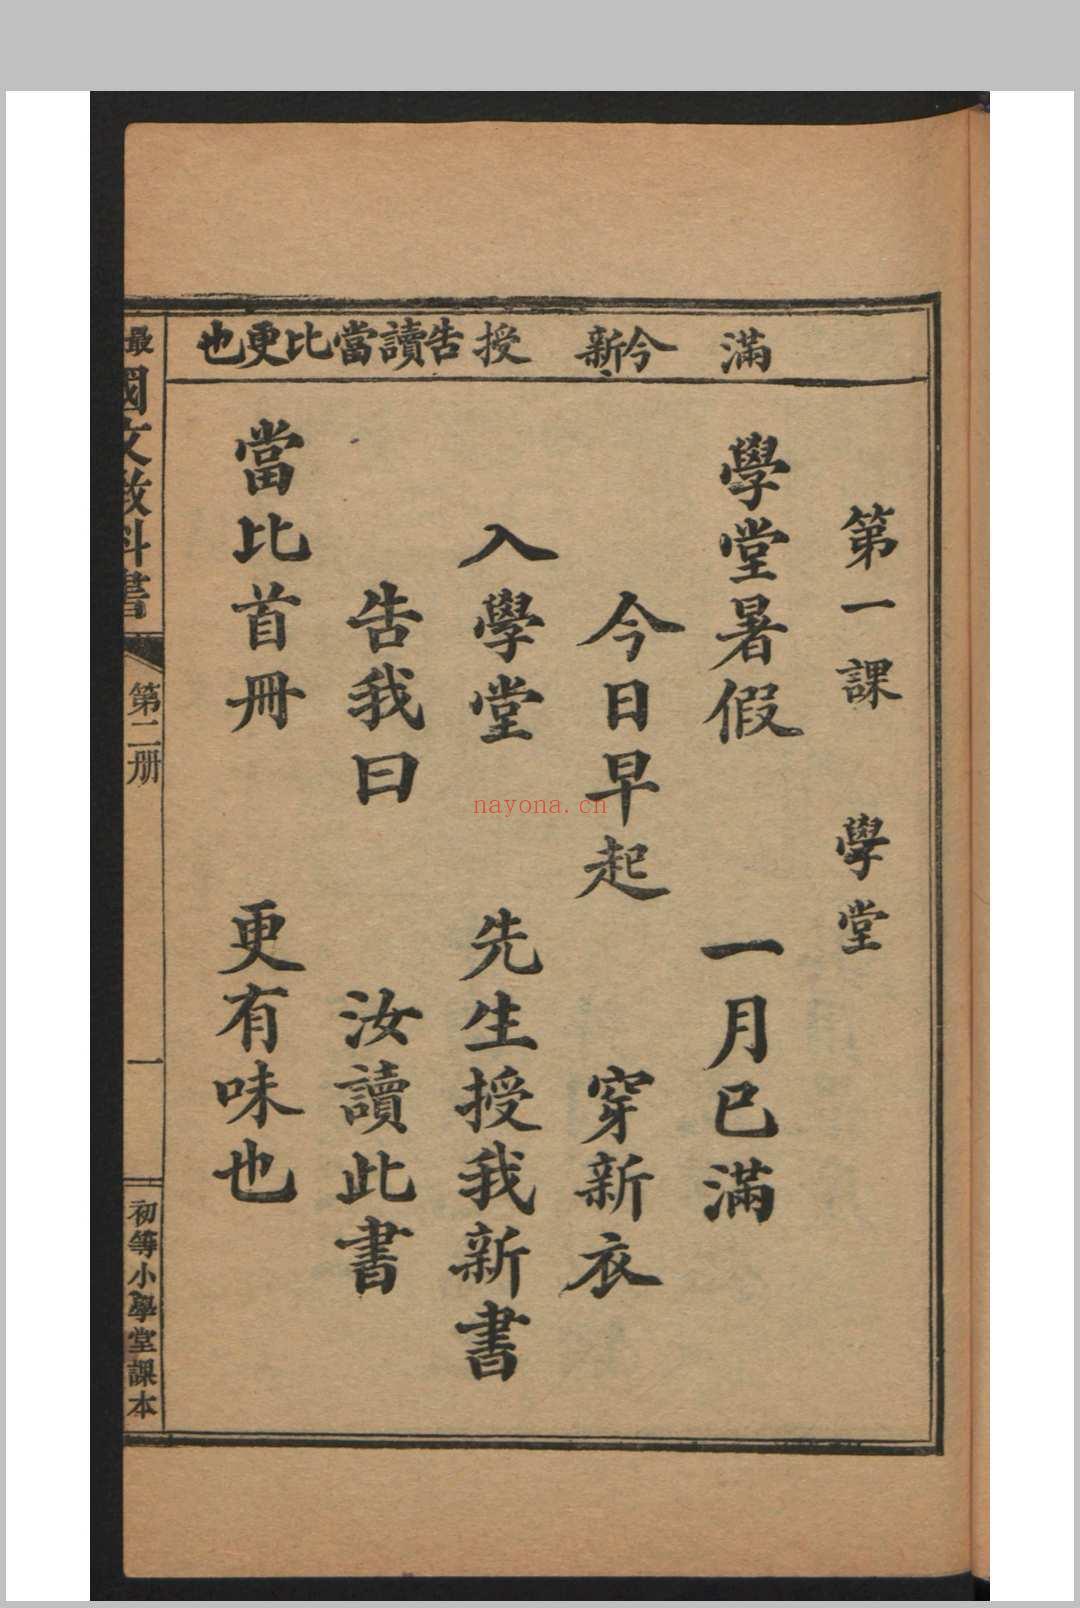 滿
今新
授
告讀當比更也
第一課 學堂
學堂暑假 一月已滿
今日早起 穿新衣
入學堂 先生授我新書
告我曰 汝讀此書
當比首冊 更有味也
最
國文教科書
第二册
一
初等小學堂課本
nayona.cn